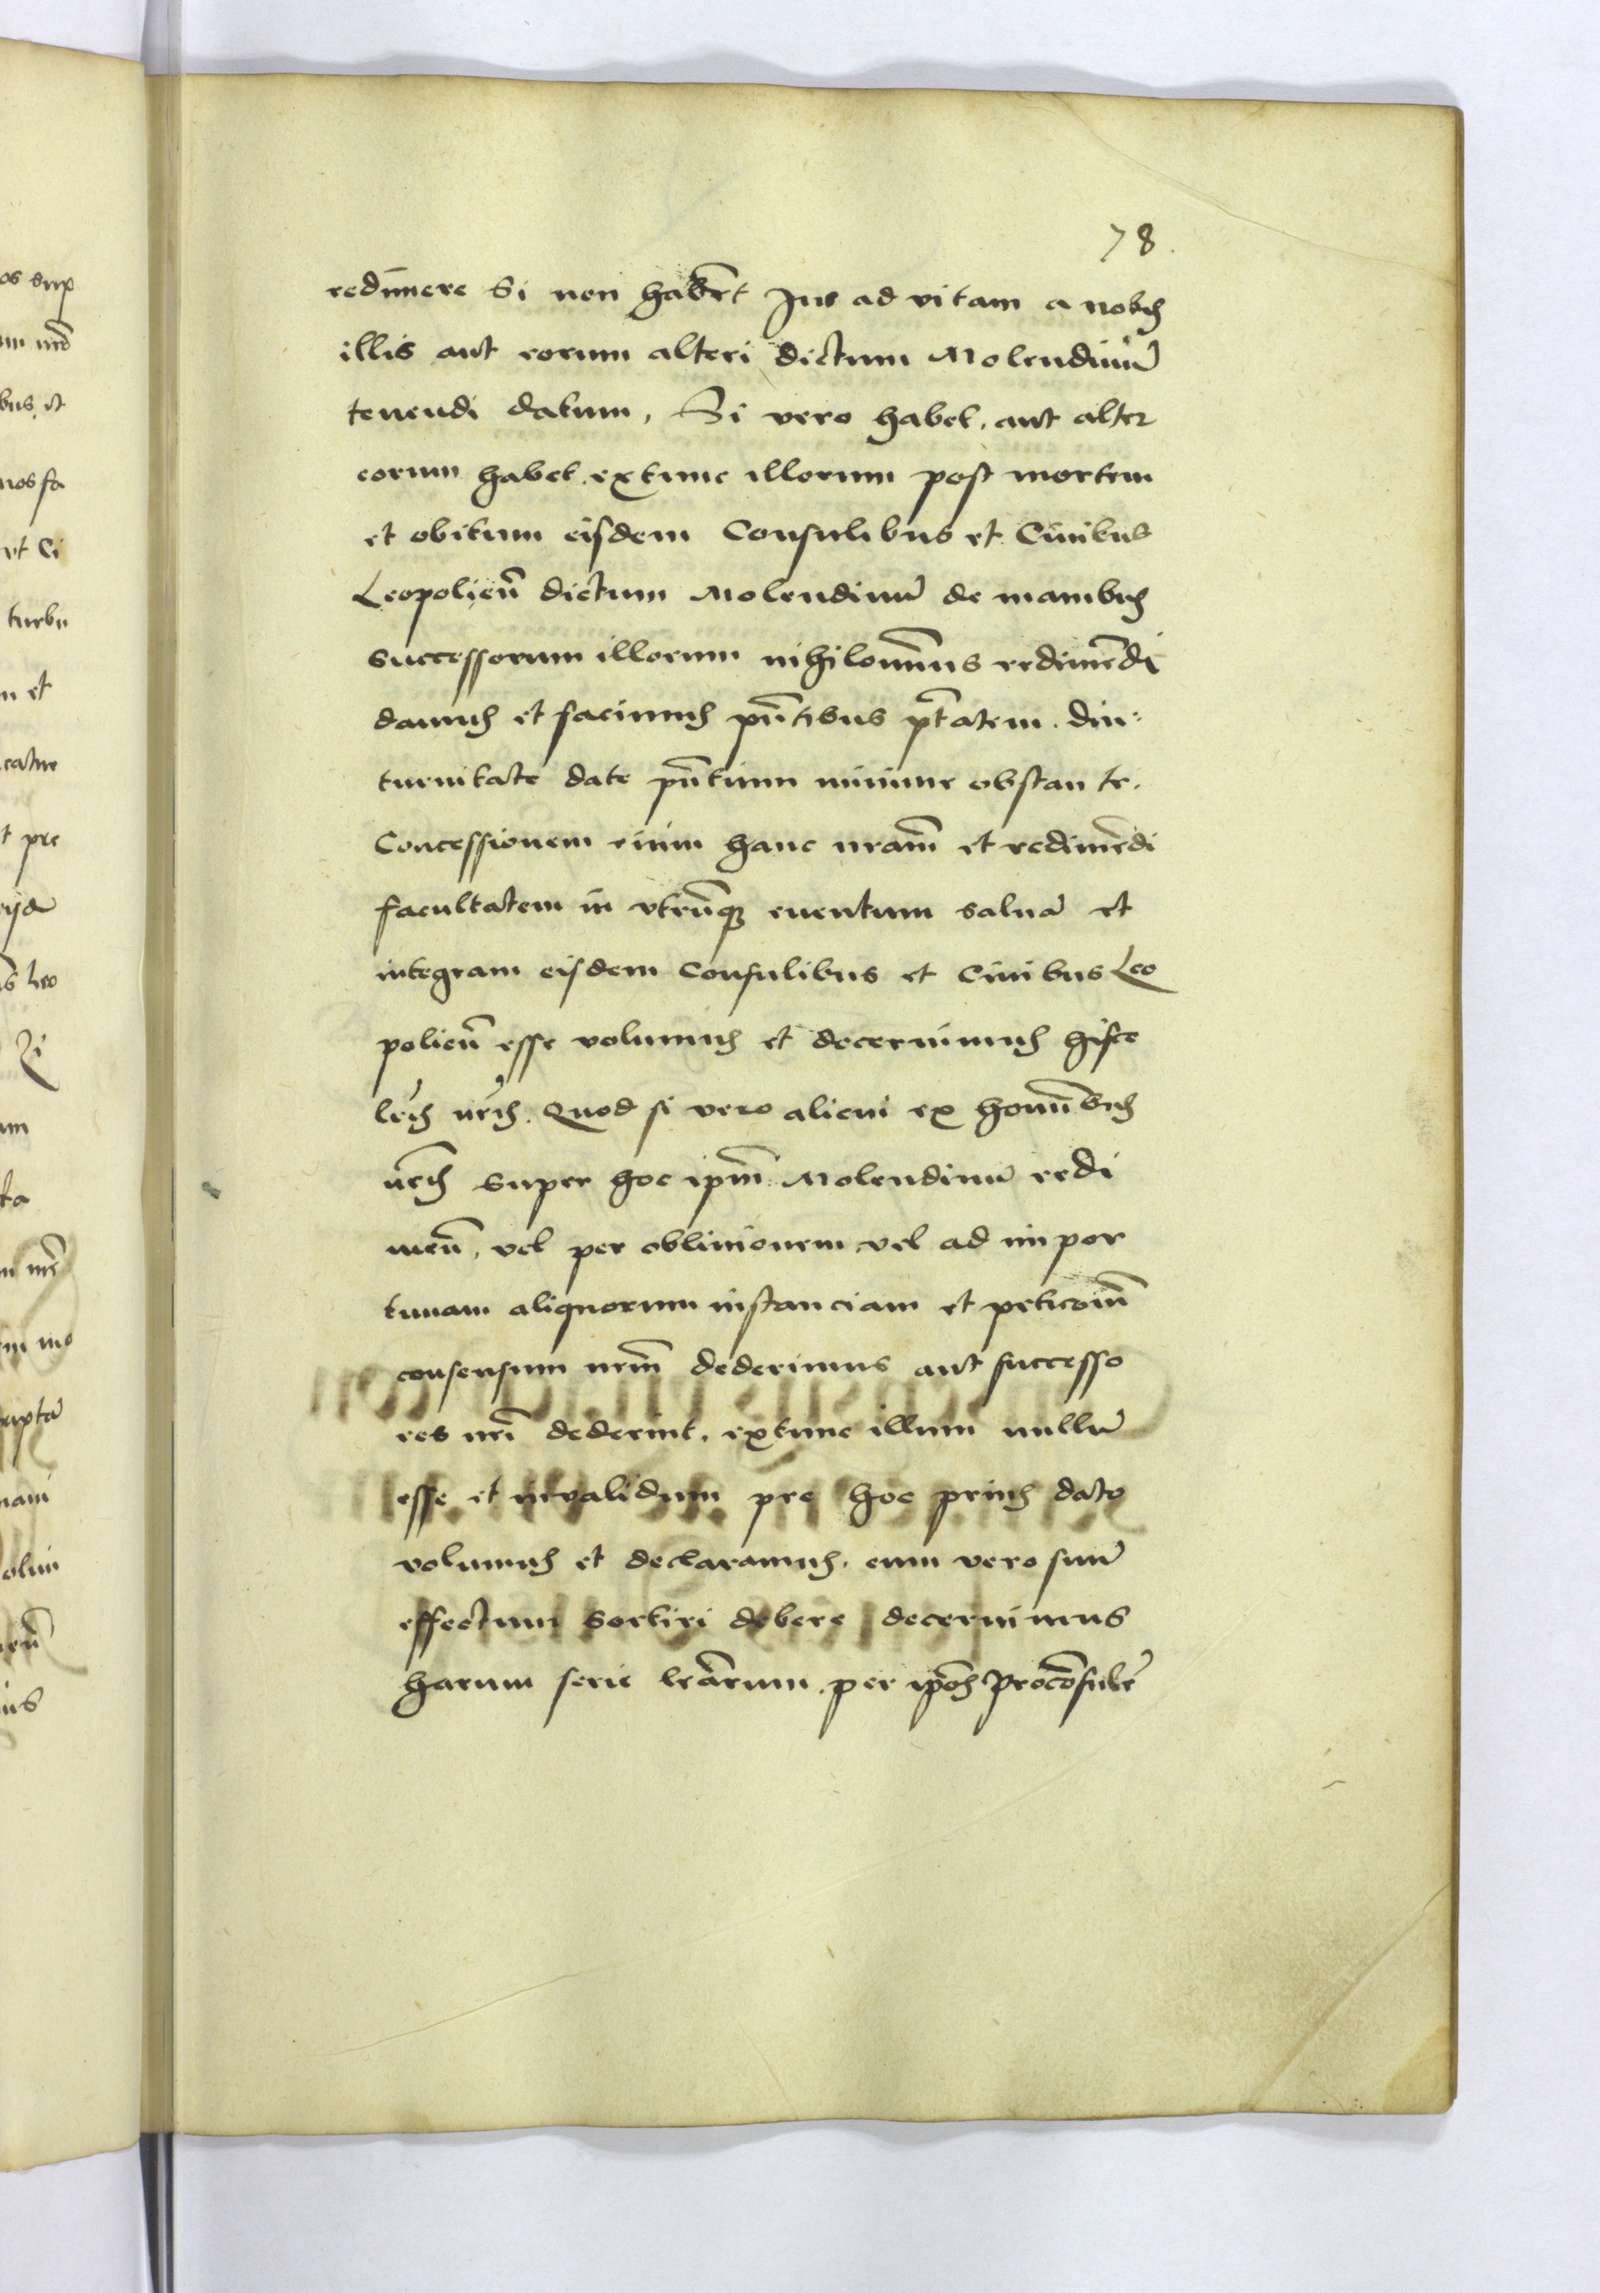 78
redimere Si non haberet Jus ad vitam a nobis
illis aut eorum alteri dictum Molendinu͂
tenendi datum, Si vero habet, aut alter
eorum habet extunc illorum post mortem
et obitum eisdem Consulibus et Ciuibus
Leopolien̄ dictum Molendinu͂ de manibus
successorum illorum nihilomīnus redimēdi
damus et facimus pn̄tibus ptātem. diu
turnitate date pn̄tium minime obstante.
Concessionem enim hanc nrām et redimēdi
facultatem in vtrūqꝫ euentum saluā et
integram eisdem Consulibus et Ciuibus Leo
polien̄ esse volumus et decernimus hisce
lrīs nrīs. Quod si vero alicui ex hominībus
nrīs super hoc ipm̄ Molendinū redi
men̄, vel per obliuionem vel ad impor
tunam aliquorum instanciam et peticoīm
consensum nrm̄ dederimus aut successo
res nrī dederint, extunc illum nullū
esse et inualidum pre hoc prius dato
volumus et declaramus, eum vero suū
effectum sortiri debere decernimus
harum serie lrārum per ipōs Procōsulē